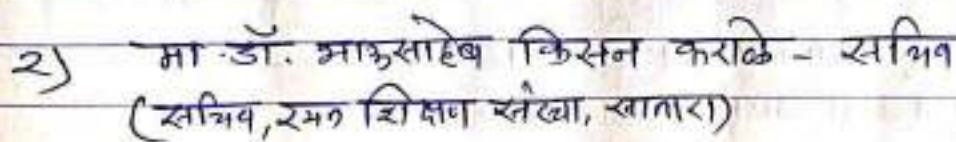 २) मा.डॉ. भाऊसाहेब किसन कराळे - सचिव
(सचिव, रयत शिक्षण संस्था, सातारा)